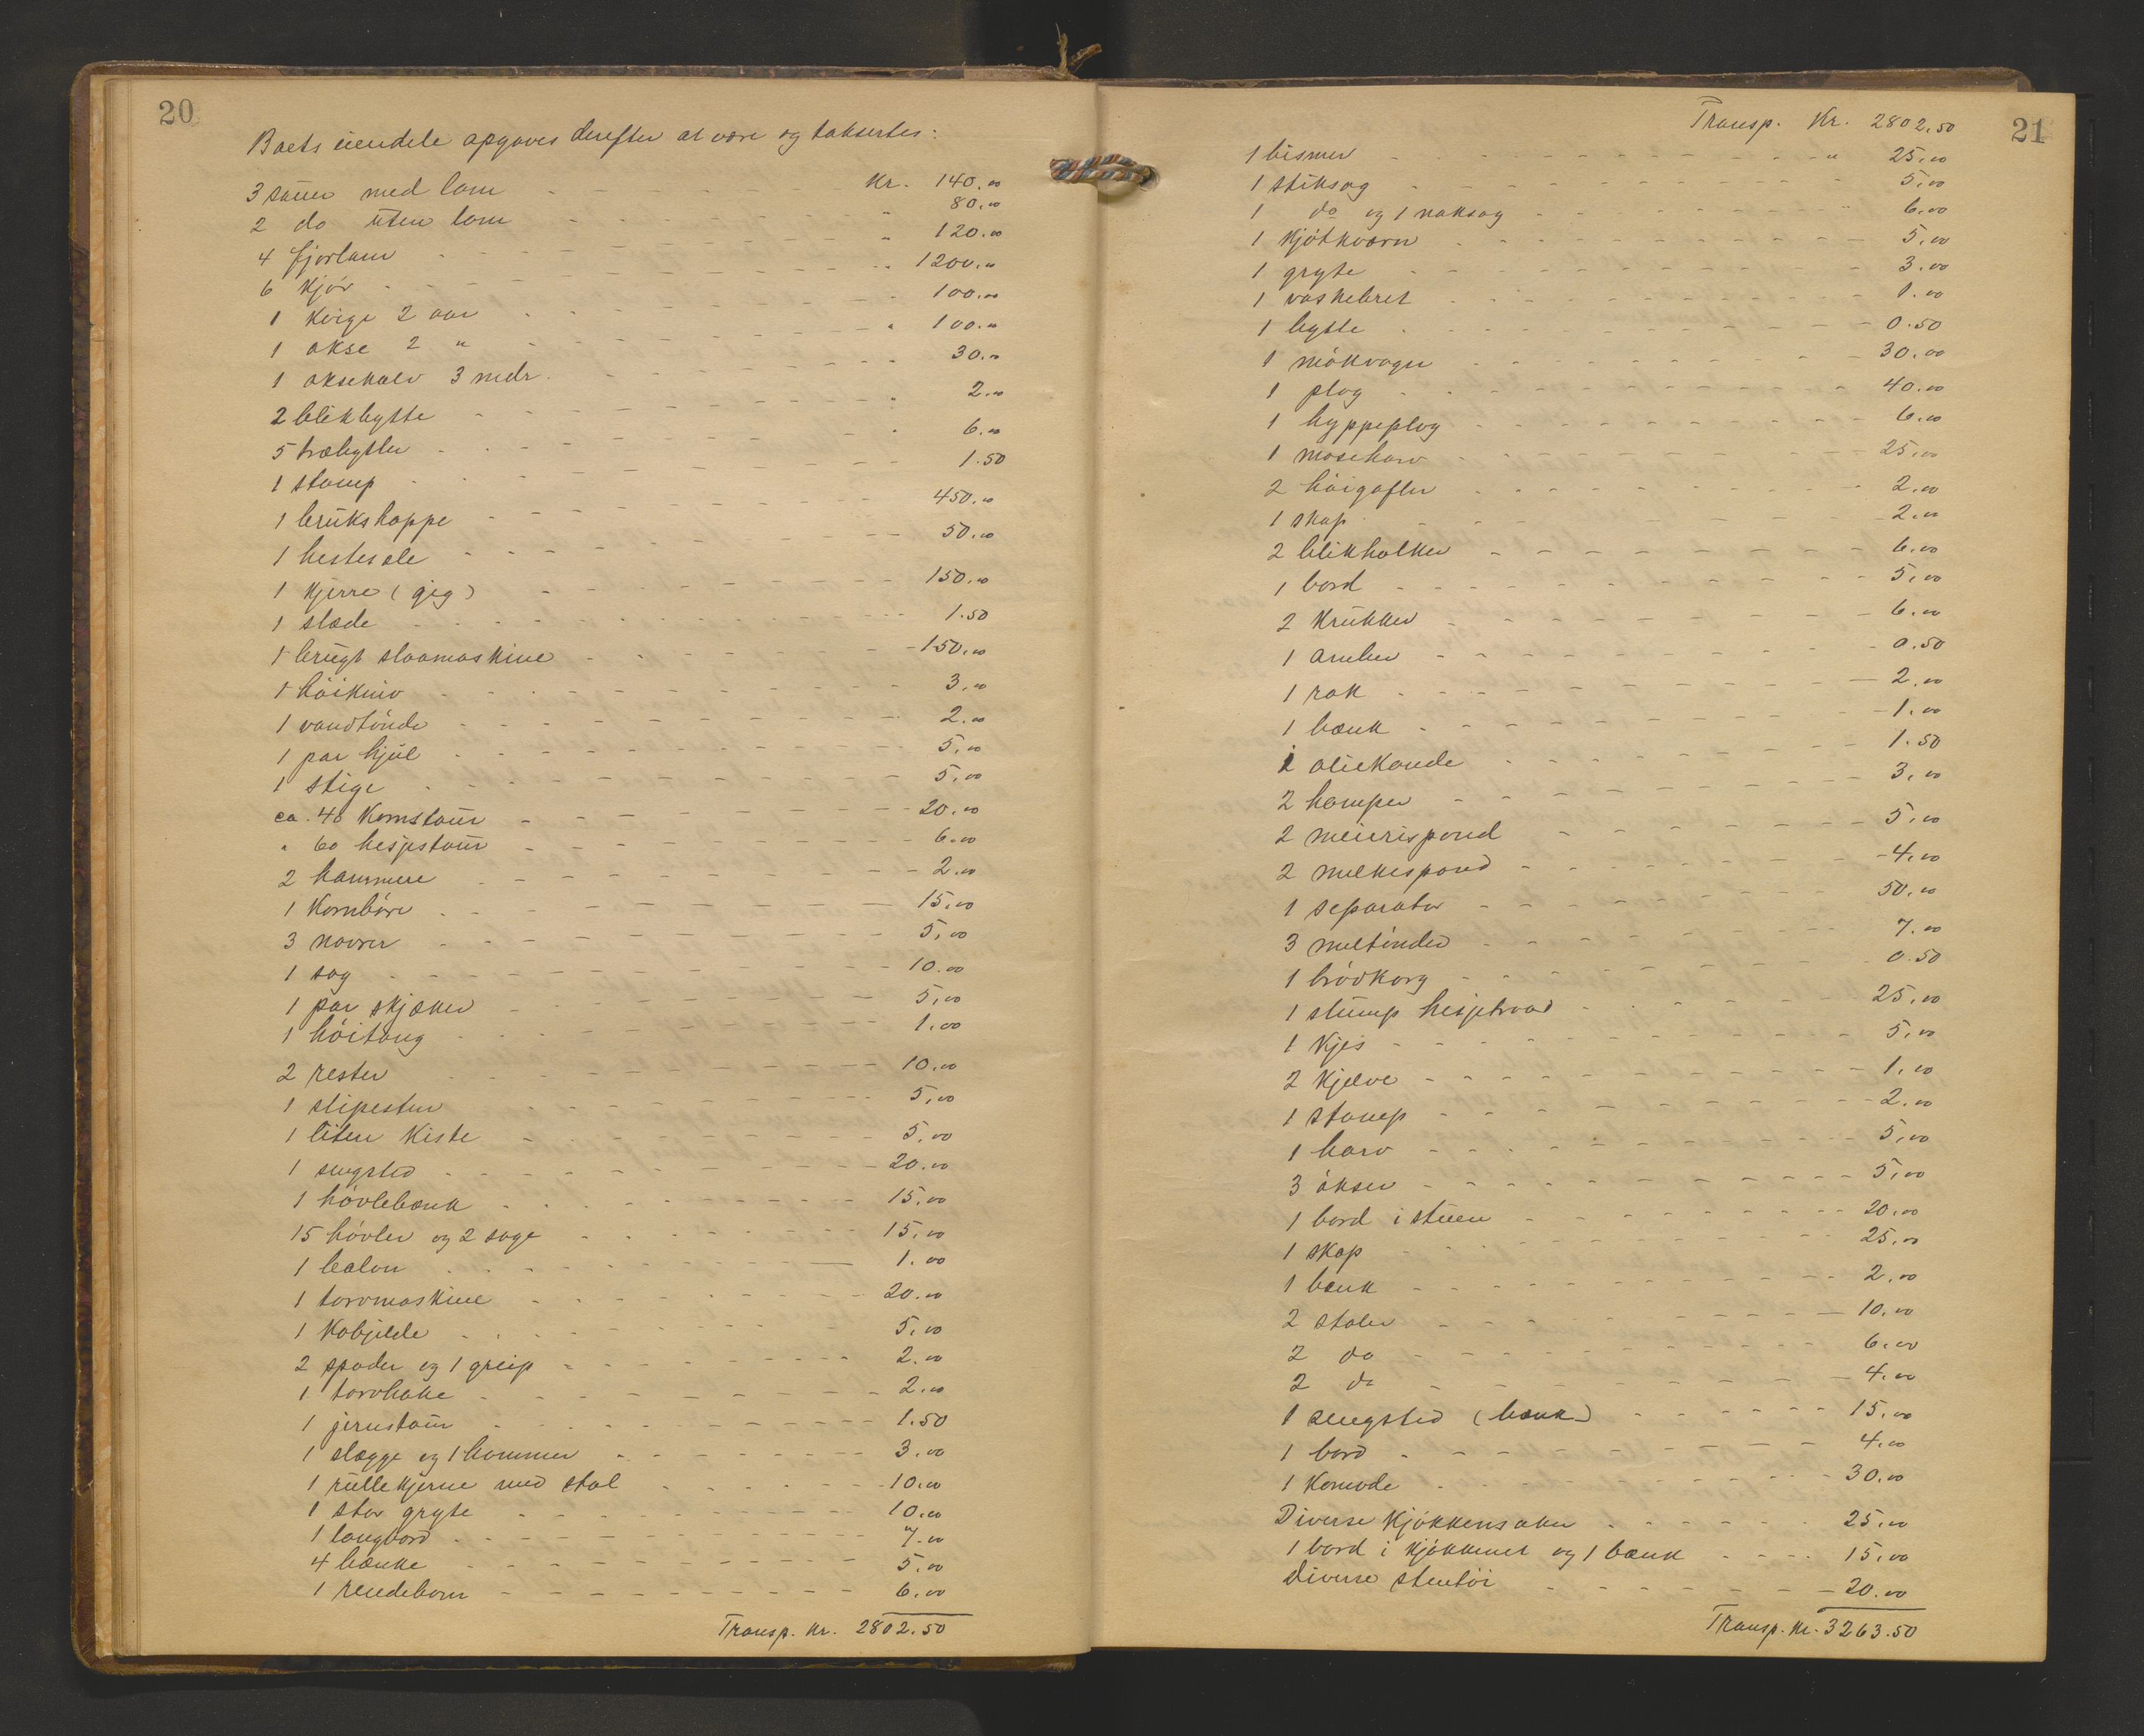 20
Boets eiendele opgaves derefter at være og taksertes:
3 sauer med lam Kr. 140.00
2 do uten lam " 80.00
4 fjorlam " 120.00
6 kjør " 1200.00
1 kvige 2 aar " 100.00
1 okse 2 " " 100.00
1 oksekalv 3 mdr. 30.00
2 blikbytte " 2.00
5 træbytter " 6.00
1 stamp 1.50
1 brukshoppe 450.00
1 hestesele 50.00
1 kjerre (gig) 150.00
1 slæde 1.50
1 brugt slaamaskine 150.00
1 høikniv 3.00
1 vandtønde 2.00
1 par hjul 5.00
1 stige 5.00
ca. 40 kornstaur 20.00
" 60 hesjestaur 6.00
2 hammere 2.00
1 kornbøre 15.00
3 navrer 5.00
1 sag 10.00
1 par skjæker 5.00
1 høitang 1.00
2 rester 10.00
1 slipesten 5.00
1 liten kiste 5.00
1 sengsted 20.00
1 høvlebænk 15.00
15 høvler og 2 sage 15.00
1 balon 1.00
1 torvmaskine 20.00
1 kobjelde 5.00
2 spader og 1 greip 2.00
1 torvhake 2.00
1 jernstaur 1.50
1 slægge og 1 hammer 3.00
1 rullekjerne med stol 10.00
1 stor gryte 10.00
1 langbord 7.00
4 bænke 5.00
1 rendebom 6.00
Transp. Kr. 2802.50
21
Transp. Kr. 2802.50
1 bismer " 25.00
1 stiksag 5.00
1 do og 1 naksag 6.00
1 kjøtkværn 5.00
1 gryte 3.00
1 vaskebret 1.00
1 bytte 0.50
1 møkvogn 30.00
1 plog 40.00
1 hyppeplog 6.00
1 moseharv 25.00
2 høigafler 2.00
1 skap 2.00
2 blikholker 6.00
1 bord 5.00
2 krukker 6.00
1 amber 0.50
1 rok 2.00
1 bænk 1.00
1 oliekande 1.50
2 lamper 3.00
2 meierispand 5.00
2 melkespand 4.00
1 separator 50.00
3 meltønder 7.00
1 brødkorg 0.50
1 stump hesjetraad 25.00
1 kjes 5.00
2 kjelve 1.00
1 stamp 2.00
1 harv 5.00
3 økser 5.00
1 bord i stuen 20.00
1 skap 25.00
1 bænk 2.00
2 stoler 10.00
2 do 6.00
2 do 4.00
1 sengsted (bænk) 15.00
1 bord 4.00
1 komode 30.00
Diverse kjøkkensaker 25.00
1 bord i kjøkkenet og 1 bænk 15.00
Diverse stentøi 20.00
Transp. Kr. 3263.50